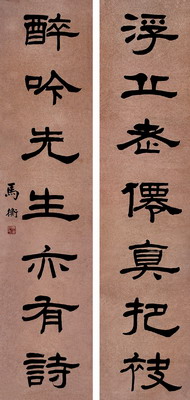 浮丘老僊真把袂
醉吟先生亦有詩
馬衡